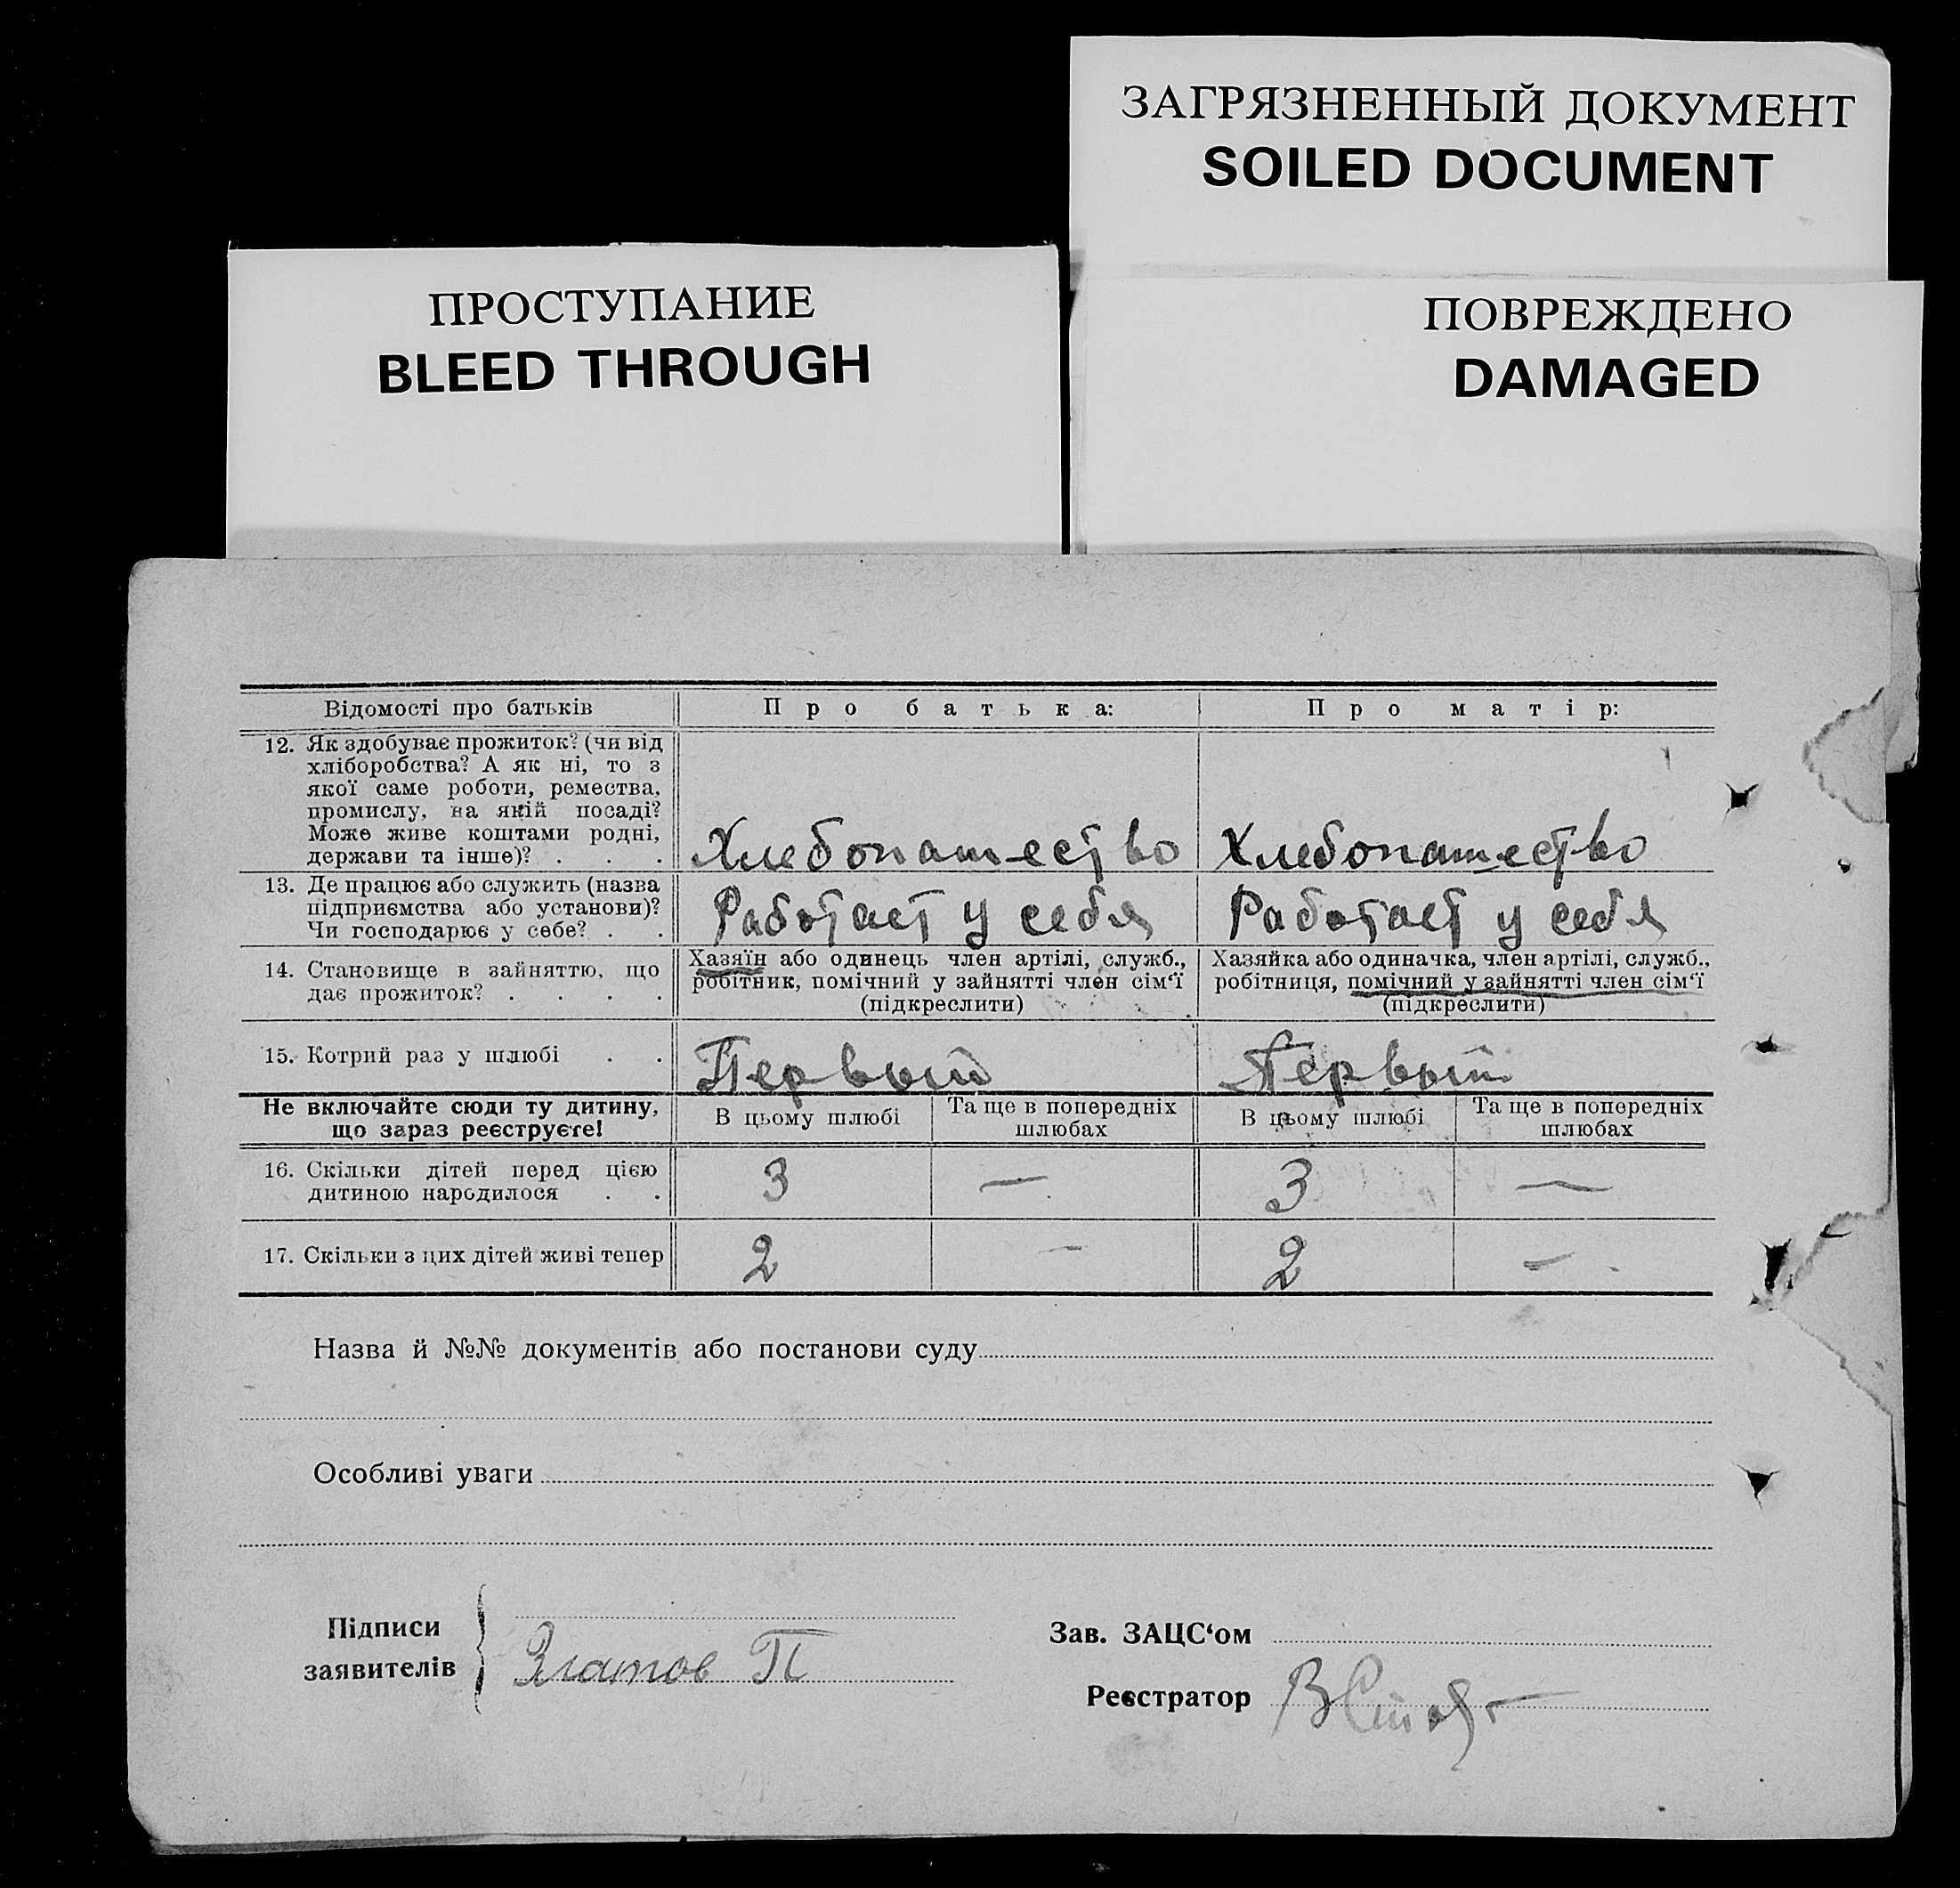 ЗАГРЯЗНЕННЫЙ ДОКУМЕНТ
SOILED DOCUMENT
ПРОСТУПАНИЕ
BLEED THROUGH
ПОВРЕЖДЕНО
DAMAGED
Відомості про батьків
Про батька:
Про матір:
12. Як здобуває прожиток? (чи від
хліборобства? А як ні, то з
якої саме роботи, ремества,
промислу, на якій посаді?
Може живе коштами родні,
держави та інше)? . . .
Хлебопашество
Хлебопашество
13. Де працює або служить (назва
підприємства або установи)?
Чи господарює у себе? . .
Работает у себя
Работает у себя
14. Становище в зайняттю, що
дає прожиток? . . . .
Хазяїн або одинець член артілі, служб.,
робітник, помічний у зайнятті член сім‘ї
(підкреслити)
Хазяйка або одиначка, член артілі, служб.,
робітниця, помічний у зайнятті член сім‘ї
(підкреслити)
15. Котрий раз у шлюбі . .
Первый
Первый
Не включайте сюди ту дитину,
що зараз реєструєте!
В цьому шлюбі
Та ще в попередніх
шлюбах
В цьому шлюбі
Та ще в попередніх
шлюбах
16. Скільки дітей перед цією
дитиною народилося . .
3 — 3 —
17. Скільки з цих дітей живі тепер
2 — 2 —
Назва й №№ документів або постанови суду
Особливі уваги
Підписи
заявителів
Златов П
Зав. ЗАЦС‘ом
Реєстратор